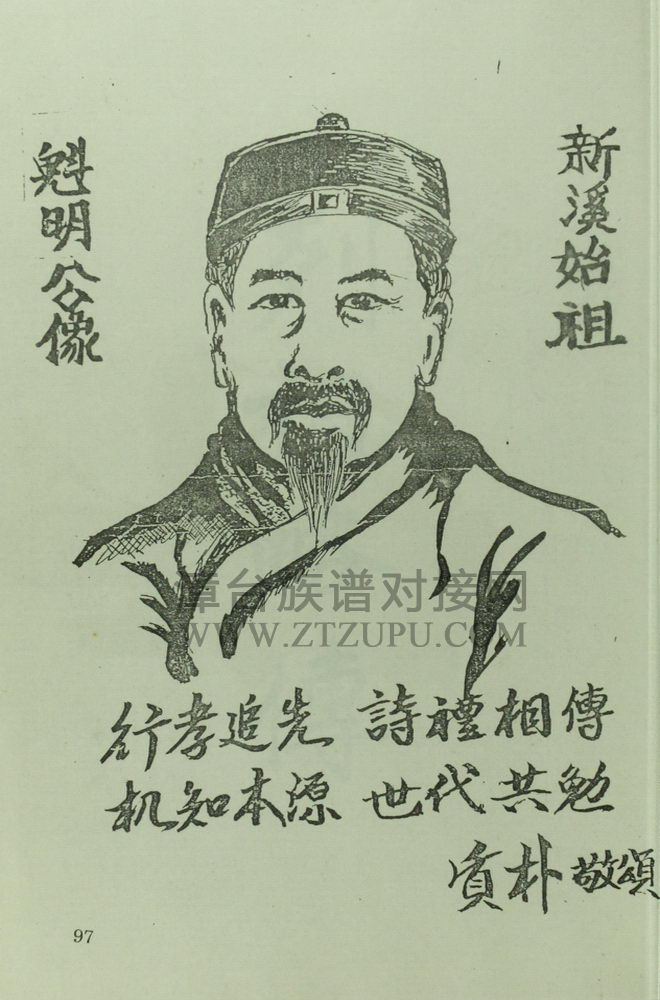 新溪始祖
魁明公像
漳台族谱对接网
WWW.ZTZUPU.COM
行孝追先 詩禮相傳
机知本源 世代共勉
質朴敬頌
97